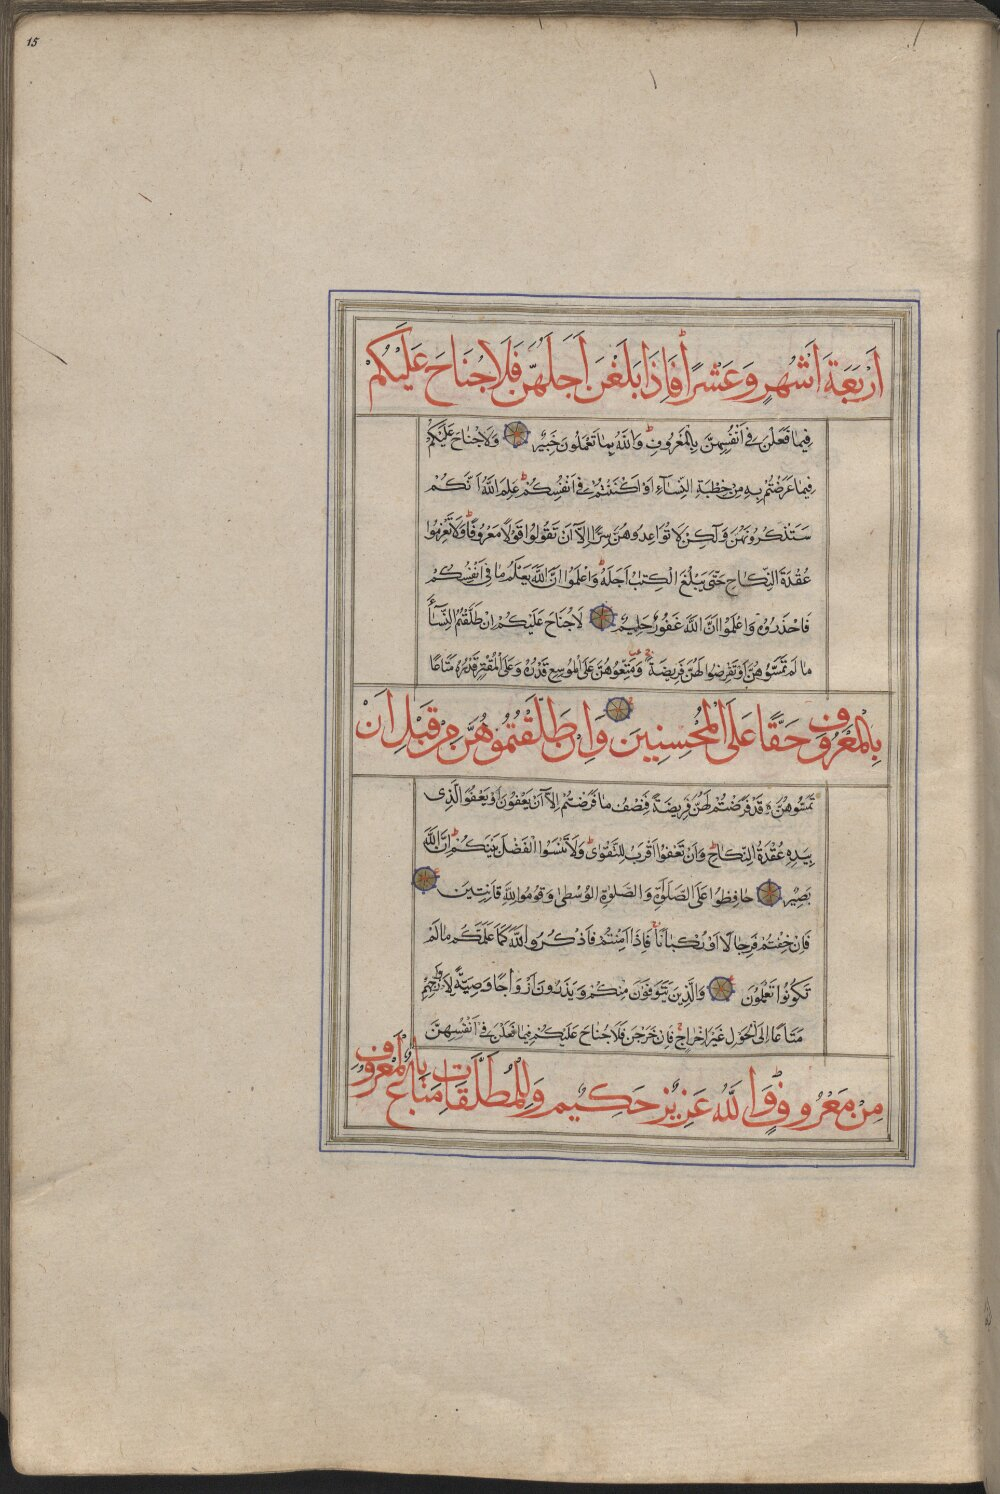 15
اَرْبَعَةَ اَشْهُرٍ وَعَشْرًا فَاِذَا بَلَغْنَ اَجَلَهُنَّ فَلَا جُنَاحَ عَلَيْكُمْ
فِيمَا فَعَلْنَ فِى اَنْفُسِهِنَّ بِالْمَعْرُوفِ وَاللّٰهُ بِمَا تَعْمَلُونَ خَبِيرٌ وَلَا جُنَاحَ عَلَيْكُمْ
فِيمَا عَرَّضْتُمْ بِهِ مِنْ خِطْبَةِ النِّسَآءِ اَوْ اَكْنَنْتُمْ فِى اَنْفُسِكُمْ عَلِمَ اللّٰهُ اَنَّكُمْ
سَتَذْكُرُونَهُنَّ وَلٰكِنْ لَا تُوَاعِدُوهُنَّ سِرًّا اِلَّا اَنْ تَقُولُوا قَوْلًا مَعْرُوفًا وَلَا تَعْزِمُوا
عُقْدَةَ النِّكَاحِ حَتّٰى يَبْلُغَ الْكِتٰبُ اَجَلَهُ وَاعْلَمُوا اَنَّ اللّٰهَ يَعْلَمُ مَا فِى اَنْفُسِكُمْ
فَاحْذَرُوهُ وَاعْلَمُوا اَنَّ اللّٰهَ غَفُورٌ حَلِيمٌ لَا جُنَاحَ عَلَيْكُمْ اِنْ طَلَّقْتُمُ النِّسَآءَ
مَا لَمْ تَمَسُّوهُنَّ اَوْ تَفْرِضُوا لَهُنَّ فَرِيضَةً وَمَتِّعُوهُنَّ عَلَى الْمُوسِعِ قَدْرُهُ وَعَلَى الْمُقْتِرِ قَدْرُهُ مَتَاعًا
بِالْمَعْرُوفِ حَقًّا عَلَى الْمُحْسِنِينَ وَاِنْ طَلَّقْتُمُوهُنَّ مِنْ قَبْلِ اَنْ
تَمَسُّوهُنَّ وَقَدْ فَرَضْتُمْ لَهُنَّ فَرِيضَةً فَنِصْفُ مَا فَرَضْتُمْ اِلَّا اَنْ يَعْفُونَ اَوْ يَعْفُوَ الَّذِى
بِيَدِهِ عُقْدَةُ النِّكَاحِ وَاَنْ تَعْفُوا اَقْرَبُ لِلتَّقْوٰى وَلَا تَنْسَوُا الْفَضْلَ بَيْنَكُمْ اِنَّ اللّٰهَ
بَصِيرٌ حَافِظُوا عَلَى الصَّلَوٰةِ وَالصَّلٰوةِ الْوُسْطٰى وَقُومُوا لِلّٰهِ قَانِتِينَ
فَاِنْ خِفْتُمْ فَرِجَالًا اَوْ رُكْبَانًا فَاِذَا اَمِنْتُمْ فَاذْكُرُوا اللّٰهَ كَمَا عَلَّمَكُمْ مَا لَمْ
تَكُونُوا تَعْلَمُونَ وَالَّذِينَ يُتَوَفَّوْنَ مِنْكُمْ وَيَذَرُونَ اَزْوَاجًا وَصِيَّةً لِاَزْوَاجِهِمْ
مَتَاعًا اِلَى الْحَوْلِ غَيْرَ اِخْرَاجٍ فَاِنْ خَرَجْنَ فَلَا جُنَاحَ عَلَيْكُمْ فِيمَا فَعَلْنَ فِى اَنْفُسِهِنَّ
مِنْ مَعْرُوفٍ وَاللّٰهُ عَزِيزٌ حَكِيمٌ وَلِلْمُطَلَّقَاتِ مَتَاعٌ بِالْمَعْرُوفِ